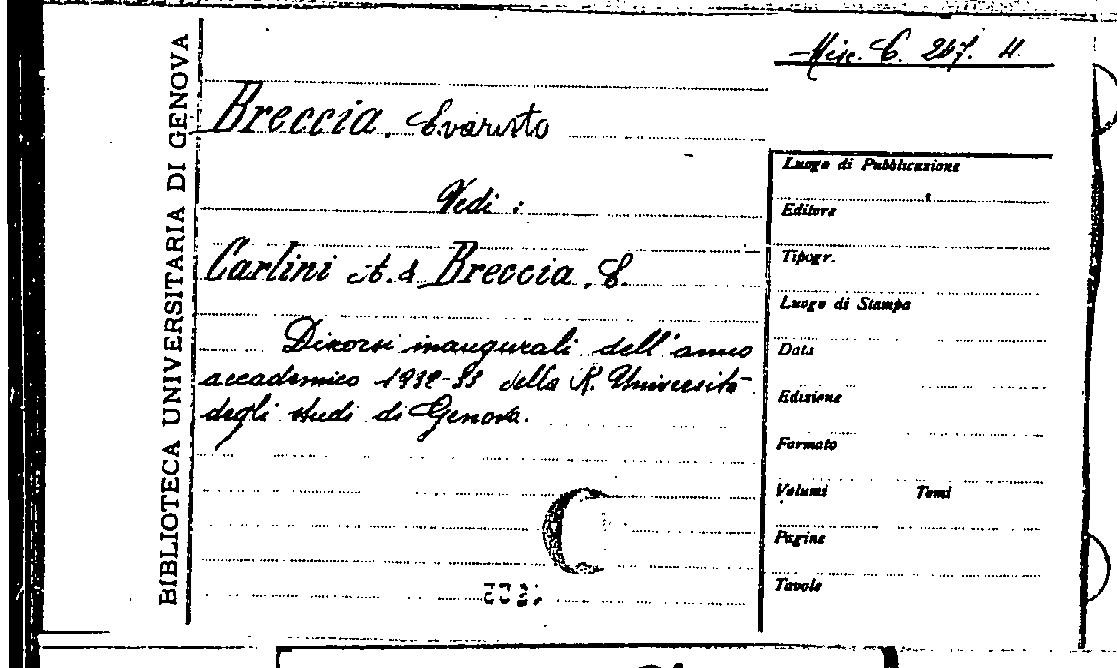 BIBLIOTECA UNIVERSITARIA DI GENOVA
Misc. C. 247. 4.
Breccia, Evaristo
Vedi :
Carlini A. & Breccia, E.
Discorsi inaugurali dell'anno
accademico 1932-33 della R. Università
degli studi di Genova.
Luogo di Pubblicazione
Editore
Tipogr.
Luogo di Stampa
Data
Edizione
Formato
Volumi Tomi
Pagine
Tavole